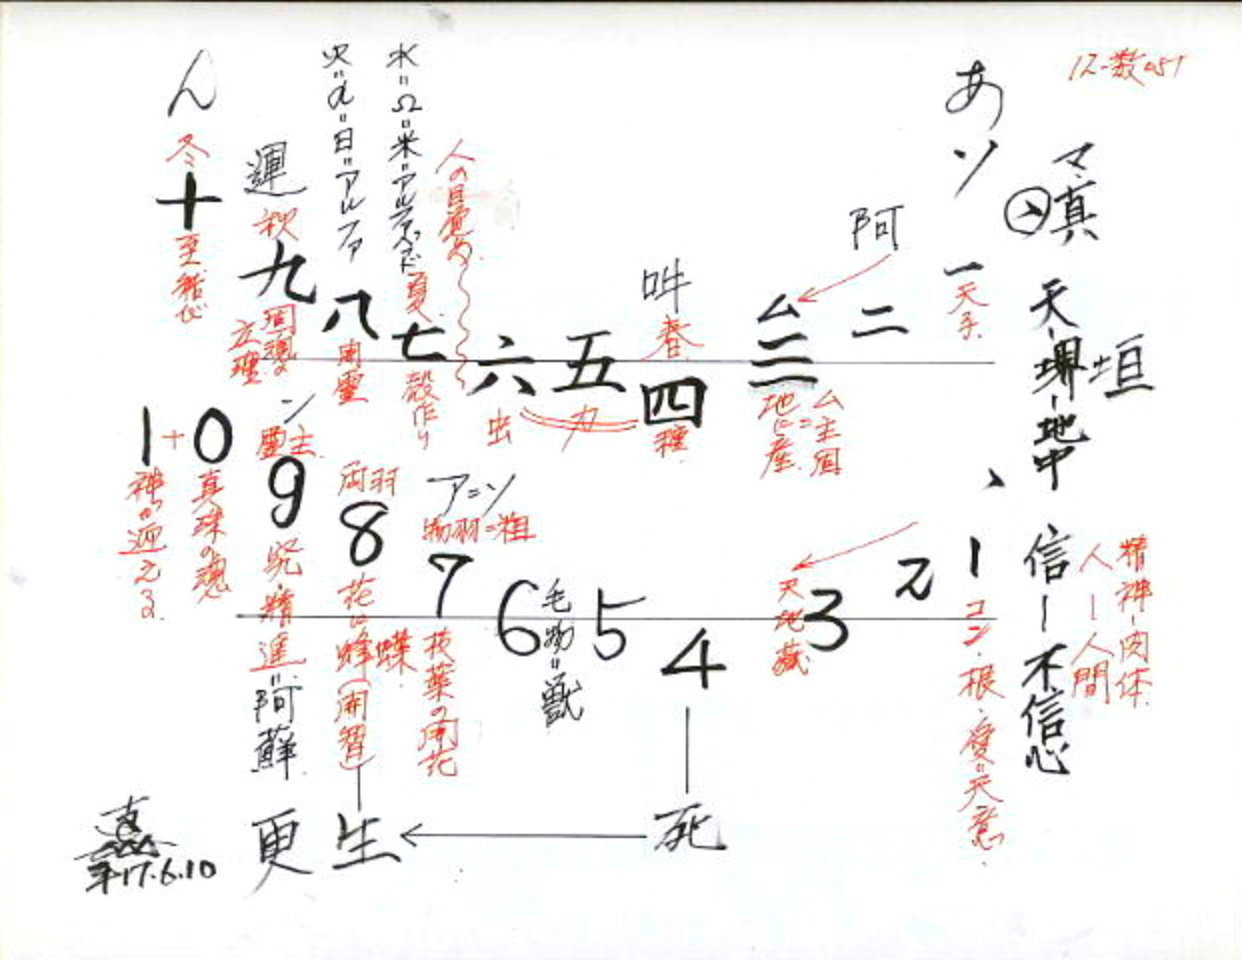 あソ
マ・真
天-堺-地中
垣
信ー不信心
精神-肉体
人ー人間
一天子
阿
二
三
ム主風
地に産
吽
春
四
種
五
力
六
虫
人の目覚め
水=Ω=米=アルファベット
夏
七
殻作り
火=α=日=アルファ
八
開霊
運
秋
九
ん
冬
十
至・結び
1
コン・根・愛=天意
2
3
天地蔵
4
5
毛物=獣
6
アニソ
物羽=粗
7
枝葉の開花
両羽
8
花に蜂・蝶(開智)
ン
霊主
9
究・精進=阿蘇
0
真珠の魂
1+
神が迎える
死
更生
平17.6.10